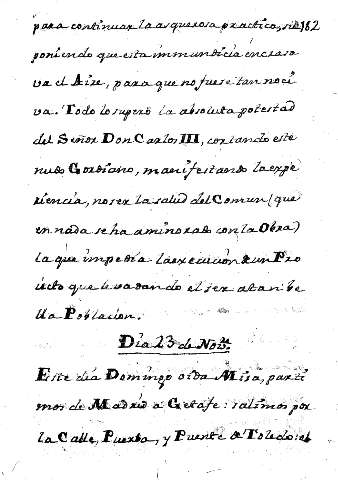 para continuar la asquerosa practica, su 182
poniendo que esta inmundicia encrasa
va el Aire, para que no fuese tan noci
va. Todo lo superó la absoluta potestad
del Señor Don Carlos III, cortando este
nudo Gordiano, manifestando la expe
riencia, no ser la salud del Comun (que
en nada se ha aminorado con la Obra)
la que impedia la execución de un Pro
iecto que le va dando el ser a tan be
lla Población.
Dia 23 de Nov.re
Este dia Domingo oida Misa, parti
mos de Madrid a Getafe: salimos por
la Calle, Puerta, y Puente de Toledo: el